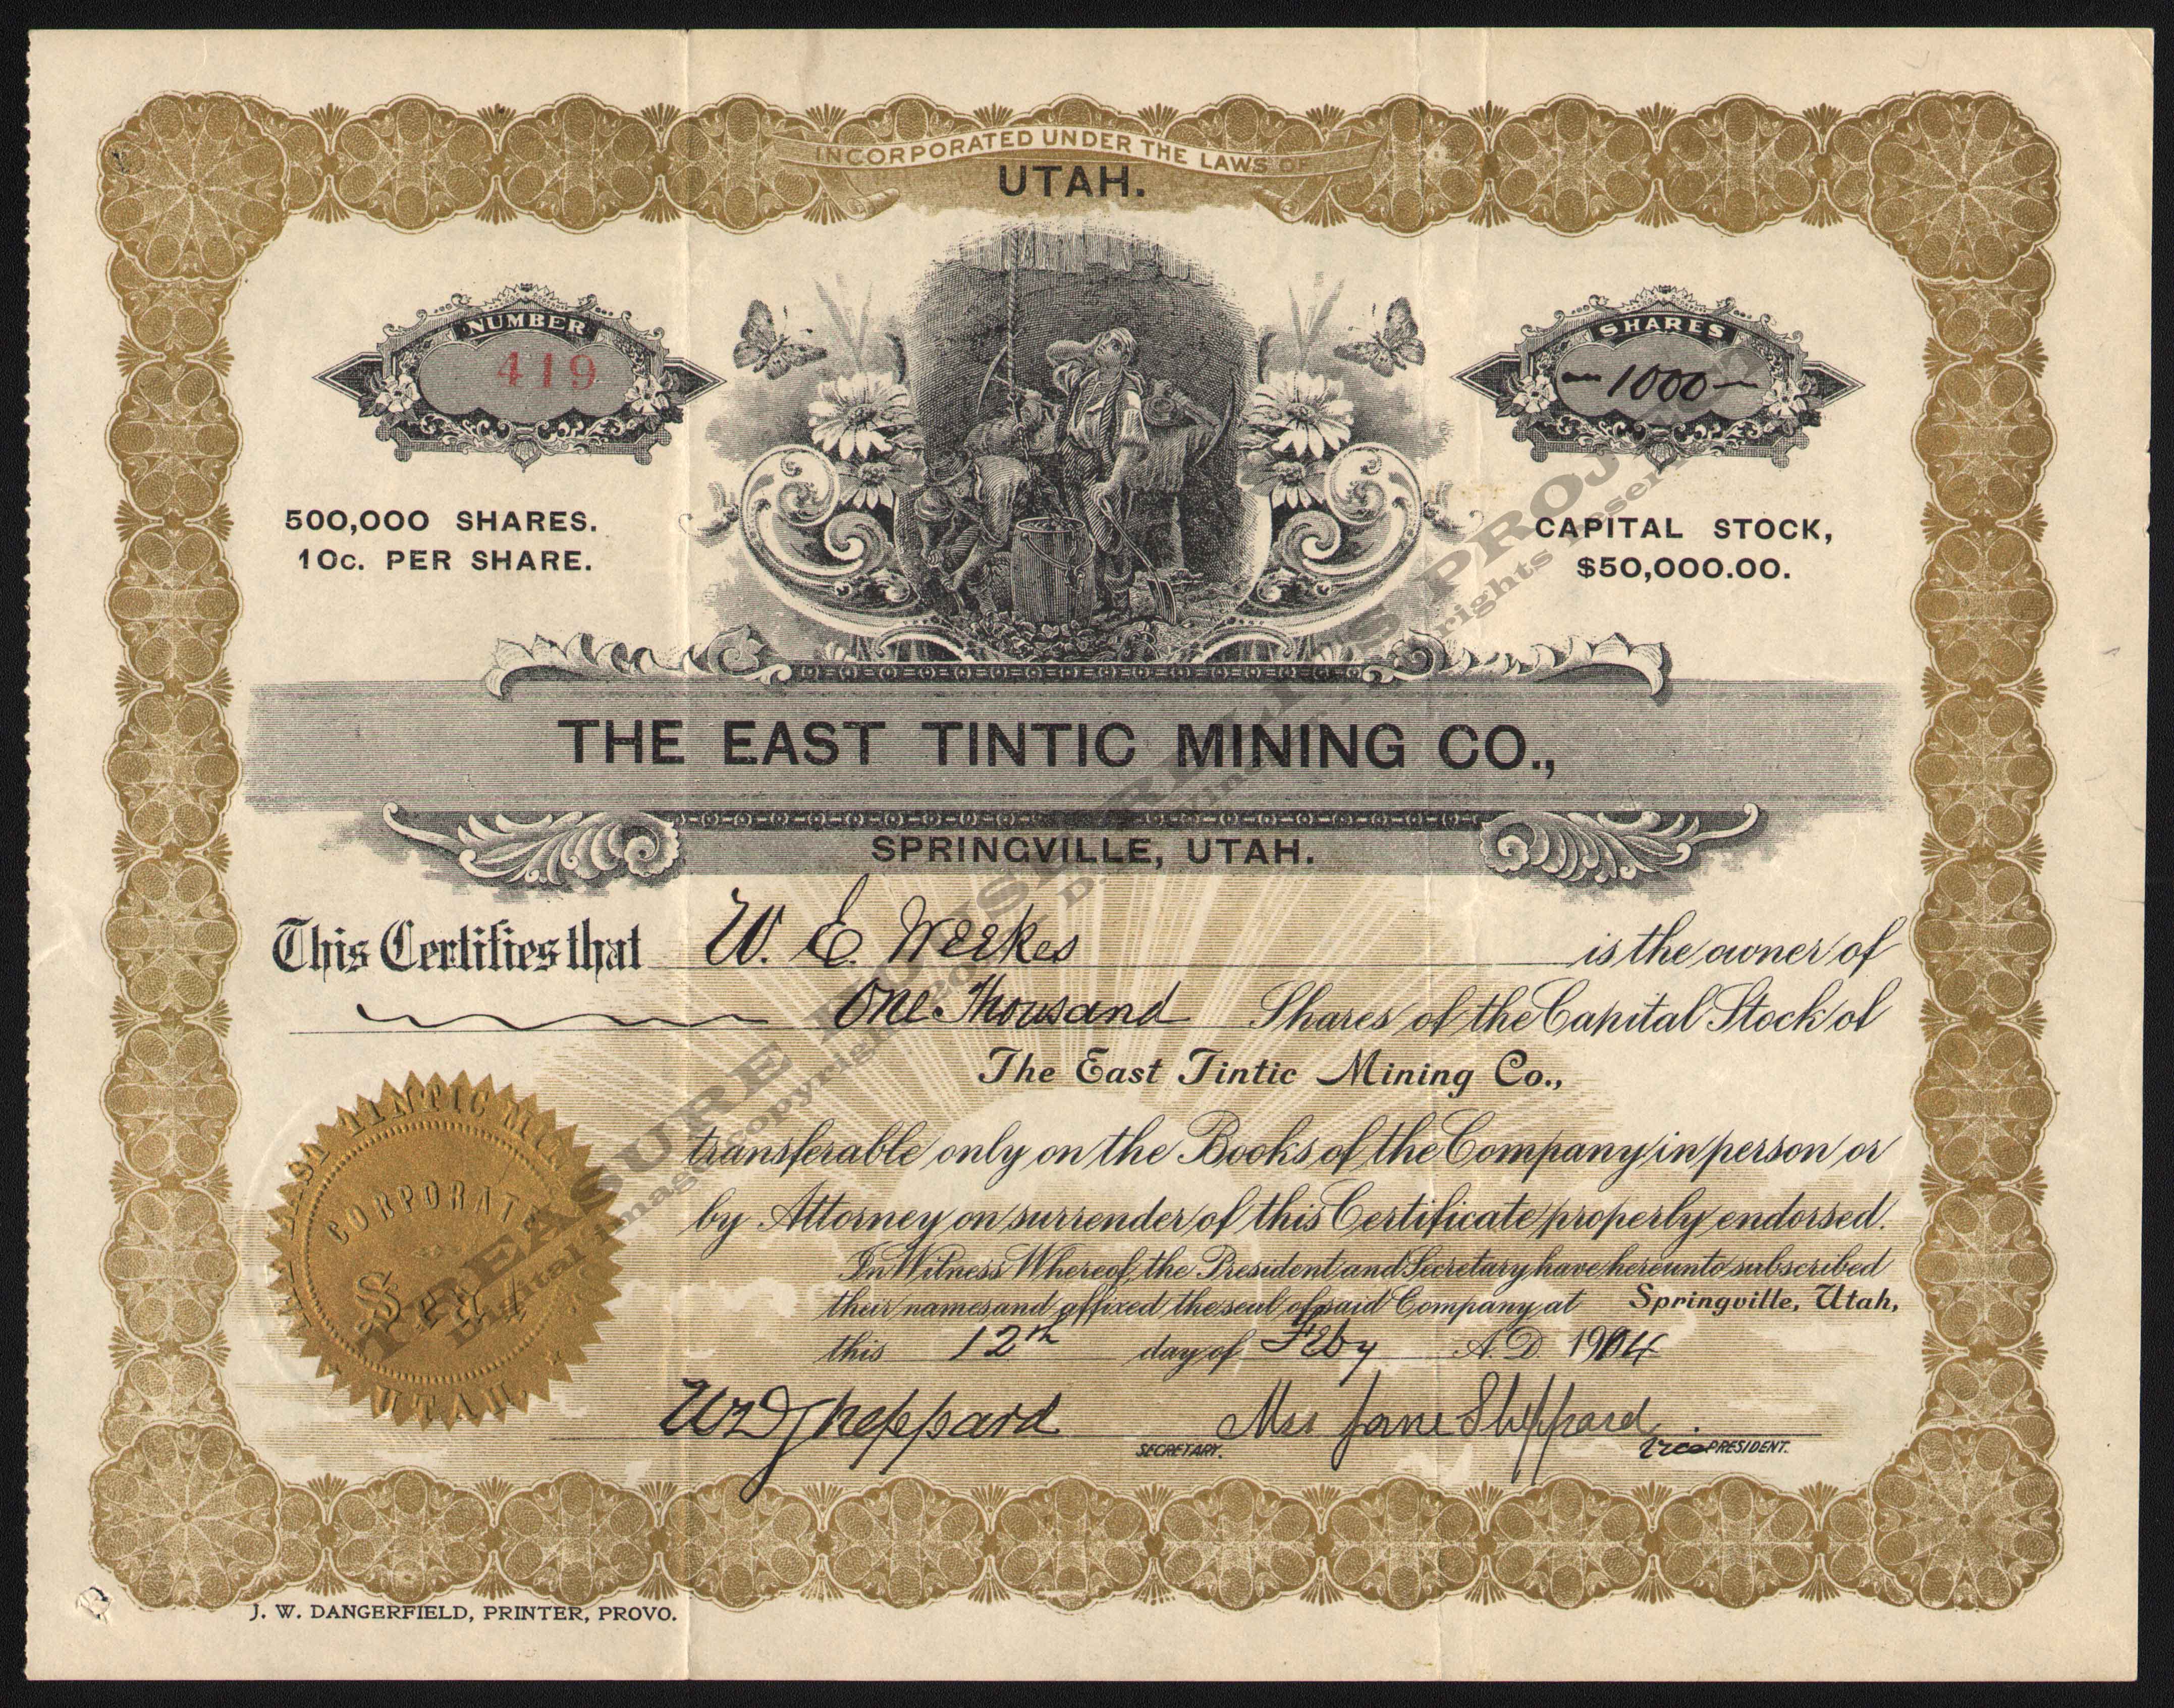 INCORPORATED UNDER THE LAWS OF
UTAH.
NUMBER
419
SHARES
1000
500,000 SHARES.
10c. PER SHARE.
CAPITAL STOCK,
$50,000.00.
THE EAST TINTIC MINING CO.,
SPRINGVILLE, UTAH.
This Certifies that W. E. Weekes is the owner of
One Thousand Shares of the Capital Stock of
The East Tintic Mining Co.,
transferable only on the Books of the Company in person or
by Attorney on surrender of this Certificate properly endorsed.
In Witness Whereof, the President and Secretary have hereunto subscribed
their names and affixed the seal of said Company at Springville, Utah,
this 12th day of Feby A.D. 1904
Sheppard SECRETARY. Mrs Jane Sheppard Vice PRESIDENT.
THE EAST TINTIC MIN
CORPORATE
Seal
UTAH
J. W. DANGERFIELD, PRINTER, PROVO.
TREASURE PROJECT
Digital image copyright rights reserved